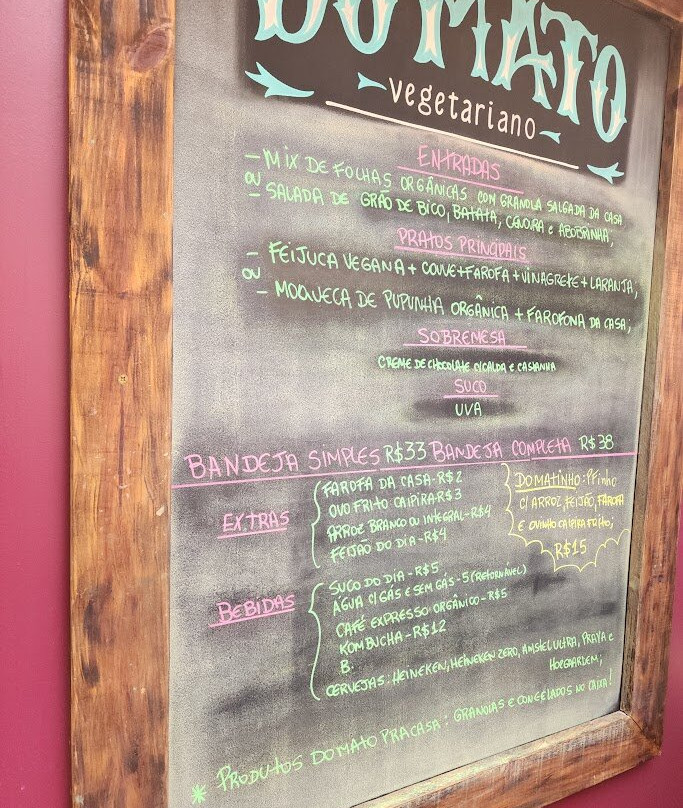 DOMATO
vegetariano
ENTRADAS
- MIX DE FOLHAS ORGÂNICAS COM GRANOLA SALGADA DA CASA
OU
- SALADA DE GRÃO DE BICO, BATATA, CENOURA e ABOBRINHA;
PRATOS PRINCIPAIS
- FEIJUCA VEGANA + COUVE + FAROFA + VINAGRETE + LARANJA;
OU
- MOQUECA DE PUPUNHA ORGÂNICA + FAROFONA DA CASA;
SOBREMESA
CREME DE CHOCOLATE C/CALDA e CASTANHA
SUCO
UVA
BANDEJA SIMPLES R$33 BANDEJA COMPLETA R$38
EXTRAS
FAROFA DA CASA - R$2
OVO FRITO CAIPIRA - R$3
ARROZ BRANCO OU INTEGRAL - R$4
FEIJÃO DO DIA - R$4
DOMATINHO: PFinho
C/ ARROZ, FEIJÃO, FAROFA
E OVINHO CAIPIRA FRITO;
R$15
BEBIDAS
SUCO DO DIA - R$5
ÁGUA C/ GÁS E SEM GÁS - 5 (RETORNÁVEL)
CAFÉ EXPRESSO ORGÂNICO - R$5
KOMBUCHA - R$12
B.
CERVEJAS: HEINEKEN, HEINEKEN ZERO, AMSTEL ULTRA, PRAYA e
HOEGAARDEM;
* PRODUTOS DOMATO PRA CASA: GRANOLAS E CONGELADOS NO CAIXA!